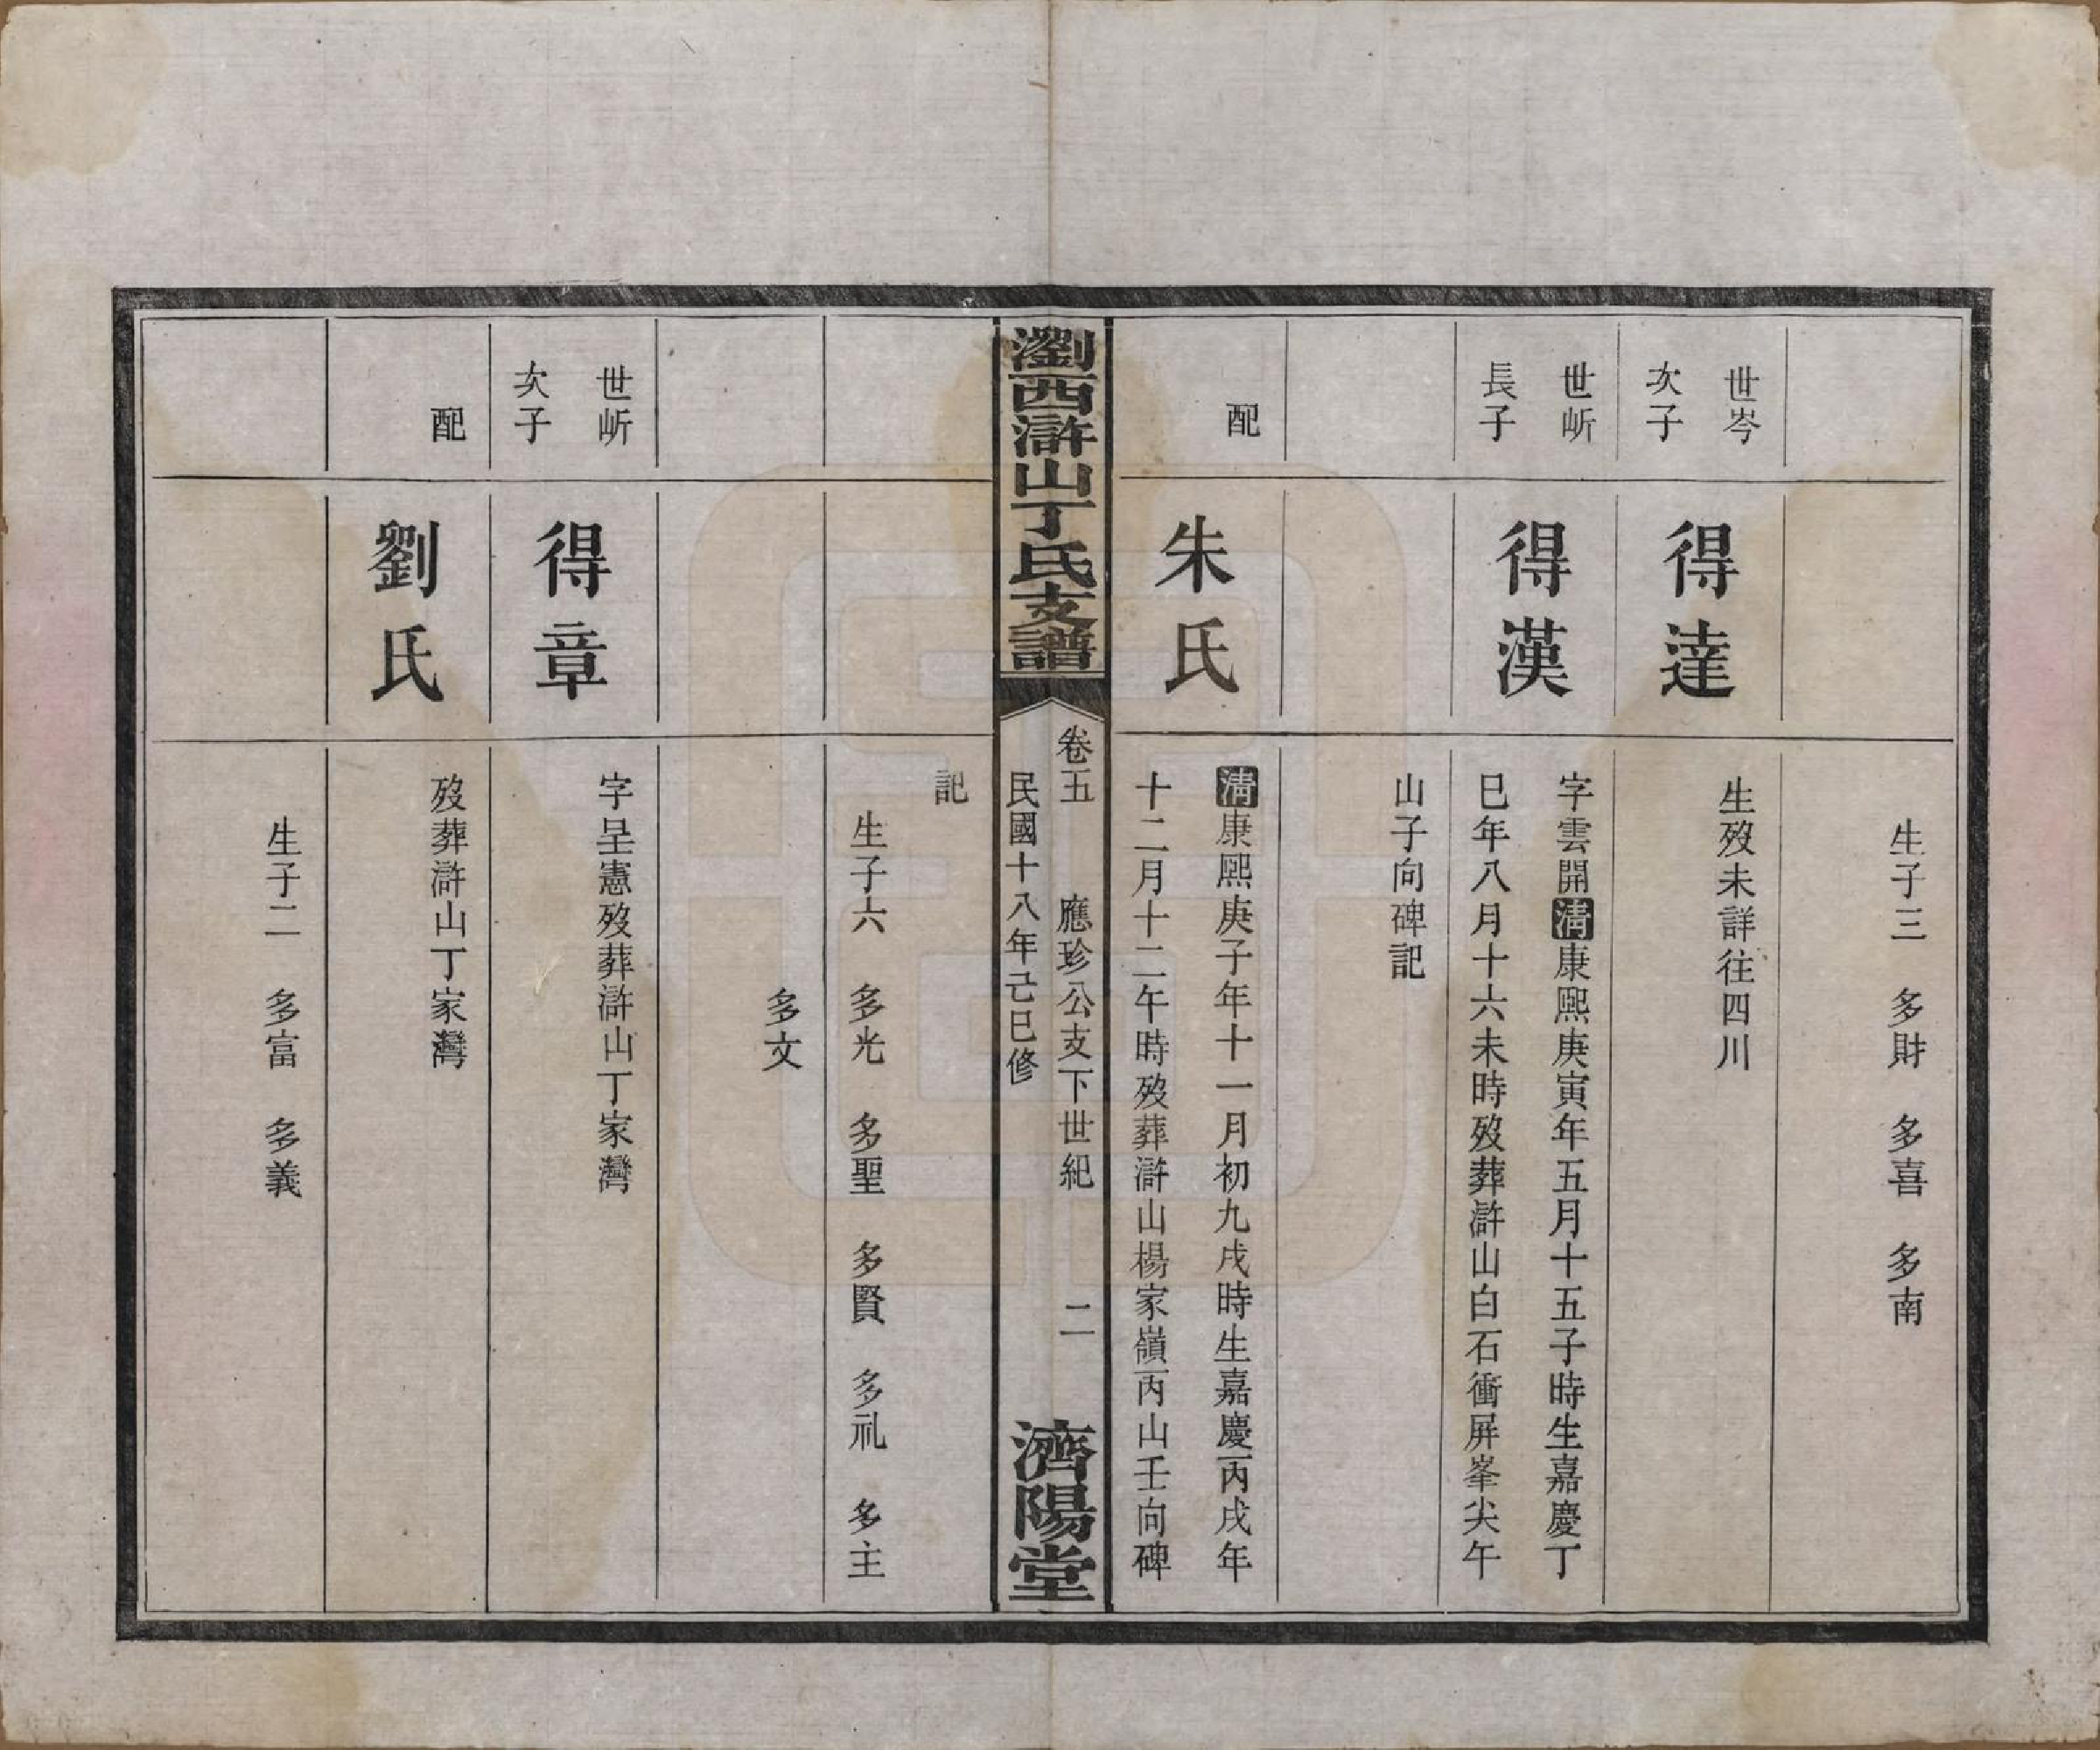 生子三　多財　多喜　多南
世岑
次子
得達
生歿未詳往四川
世岓
長子
得漢
字雲開清康熙庚寅年五月十五子時生嘉慶丁
巳年八月十六未時歿葬滸山白石衝屏峯尖午
山子向碑記
配
朱氏
清康熙庚子年十一月初九戌時生嘉慶丙戌年
十二月十二午時歿葬滸山楊家嶺丙山壬向碑
瀏西滸山丁氏支譜
卷五　應珍公支下世紀　二
民國十八年己巳修
濟陽堂
記
生子六　多光　多聖　多賢　多礼　多主
多文
世岓
次子
得章
字呈憲歿葬滸山丁家灣
配
劉氏
歿葬滸山丁家灣
生子二　多富　多義